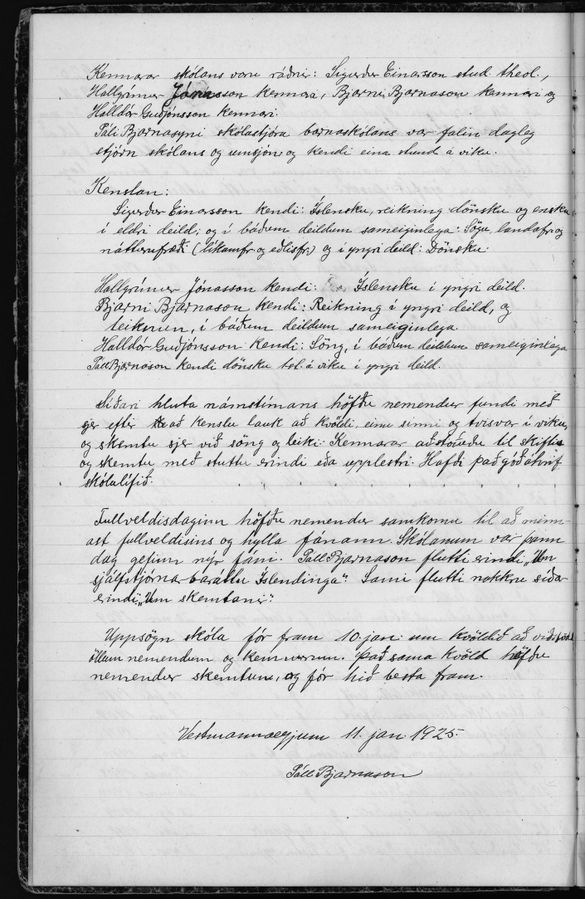 Kennarar skólans voru ráðnir: Sigurður Einarsson stud theol,
Hallgrímur Jónasson kennari, Bjarni Bjarnason kennari og
Halldór Guðjónsson kennari.
Páli Bjarnasyni skólastjóra barnaskólans var falin dagleg
stjórn skólans og umsjón og kendi eina stund á viku.
Kenslan:
Sigurður Einarsson kendi: Íslensku, reikning dönsku og ensku
í eldri deild; og í báðum deildum sameiginlega: Sögu, landafr og
náttúrufræði (Líkamsfr og eðlisfr) og í yngri deild: Dönsku.
Hallgrímur Jónasson kendi: Íslensku í yngri deild.
Bjarni Bjarnason kendi: Reikning í yngri deild, og
teiknun, í báðum deildum sameiginlega
Halldór Guðjónsson kendi: Söng, í báðum deildum sameiginlega
Páll Bjarnason kendi dönsku á viku í yngri deild.
Síðari hluta námstímans höfðu nemendur fundi með
sjer eftir að kenslu lauk að kvöldi einu sinni og tvisvar í viku
og skemtu sjer við söng og leiki. Kennarar aðstoðuðu til skiftis
og skemtu með stuttu erindi eða upplestri. Hafði það góð áhrif
skólalífið.
Fullveldisdaginn höfðu nemendur samkomu til að minn-
ast fullveldisins og hylla fánann. Skólanum var þann
dag gefinn nýr fáni. Páll Bjarnason flutti erindi „Um
sjálfstjórnabaráttu Íslendinga". Sami flutti nokkru síðar
erindi „Um skemtanir".
Uppsögn skóla fór fram 10. jan. um kvöldið að viðstödd
öllum nemendum og kennurum. Það sama kvöld höfðu
nemendur skemtun, og fór hið besta fram.
Vestmannaeyjum 11. jan 1925.
Páll Bjarnason